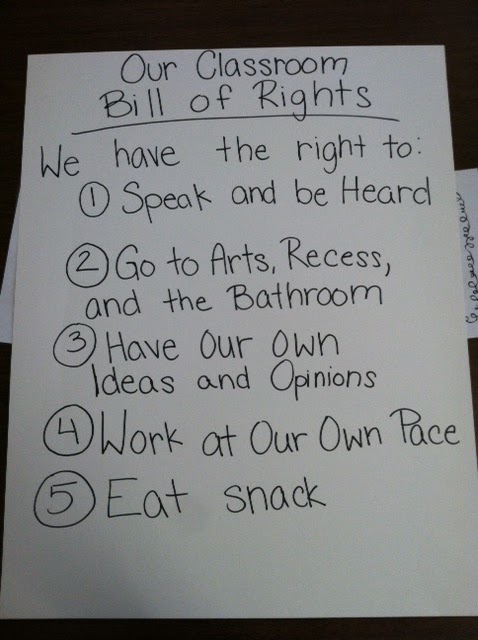 Our Classroom
Bill of Rights
We have the right to:
1 Speak and be Heard
2 Go to Arts, Recess,
and the Bathroom
3 Have Our Own
Ideas and Opinions
4 Work at Our Own Pace
5 Eat snack